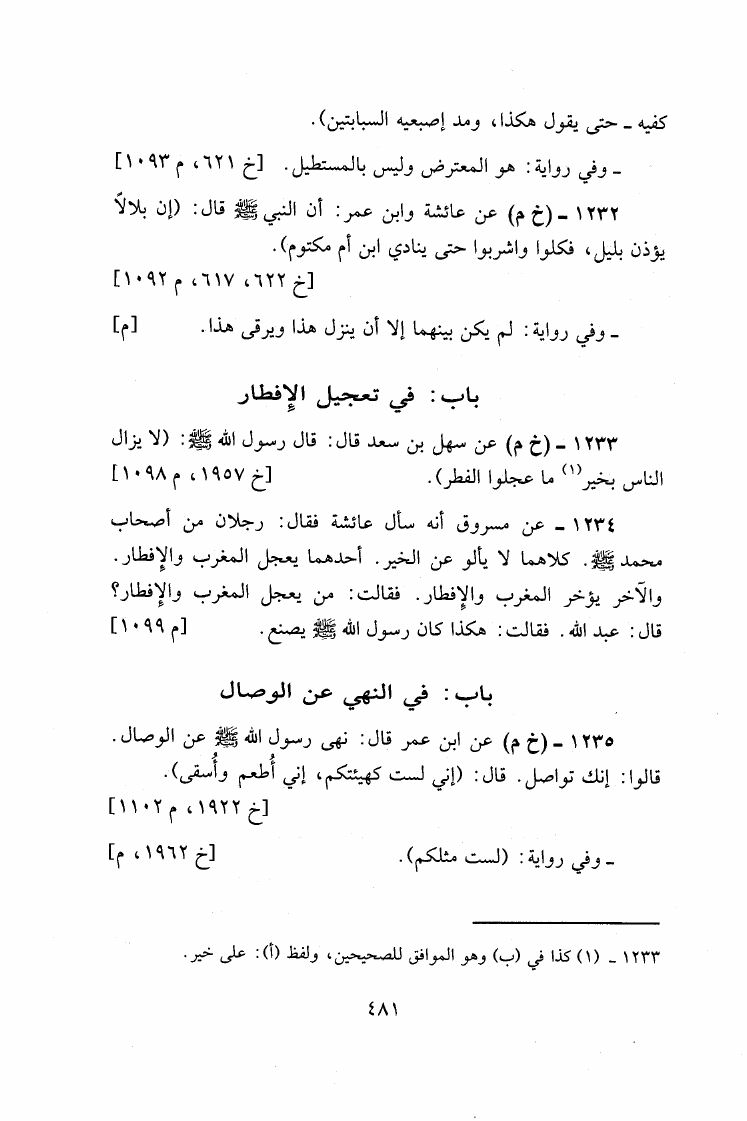 كفيه ـ حتى يقول هكذا، ومد إصبعيه السبابتين).
ـ وفي رواية: هو المعترض وليس بالمستطيل. [خ ٦٢١، م ١٠٩٣]
١٢٣٢ ـ (خ م) عن عائشة وابن عمر: أن النبي ﷺ قال: (إن بلالاً
يؤذن بليل، فكلوا واشربوا حتى ينادي ابن أم مكتوم).
[خ ٦٢٢، ٦١٧، م ١٠٩٢]
ـ وفي رواية: لم يكن بينهما إلا أن ينزل هذا ويرقى هذا. [م]
باب: في تعجيل الإفطار
١٢٣٣ ـ (خ م) عن سهل بن سعد قال: قال رسول الله ﷺ: (لا يزال
الناس بخير(١) ما عجلوا الفطر). [خ ١٩٥٧، م ١٠٩٨]
١٢٣٤ ـ عن مسروق أنه سأل عائشة فقال: رجلان من أصحاب
محمد ﷺ. كلاهما لا يألو عن الخير. أحدهما يعجل المغرب والإفطار.
والآخر يؤخر المغرب والإفطار. فقالت: من يعجل المغرب والإفطار؟
قال: عبد الله. فقالت: هكذا كان رسول الله ﷺ يصنع. [م ١٠٩٩]
باب: في النهي عن الوصال
١٢٣٥ ـ (خ م) عن ابن عمر قال: نهى رسول الله ﷺ عن الوصال.
قالوا: إنك تواصل. قال: (إني لست كهيئتكم، إني أُطعم وأُسقى).
[خ ١٩٢٢، م ١١٠٢]
ـ وفي رواية: (لست مثلكم). [خ ١٩٦٢، م]
١٢٣٣ ـ (١) كذا في (ب) وهو الموافق للصحيحين، ولفظ (أ): على خير.
٤٨١